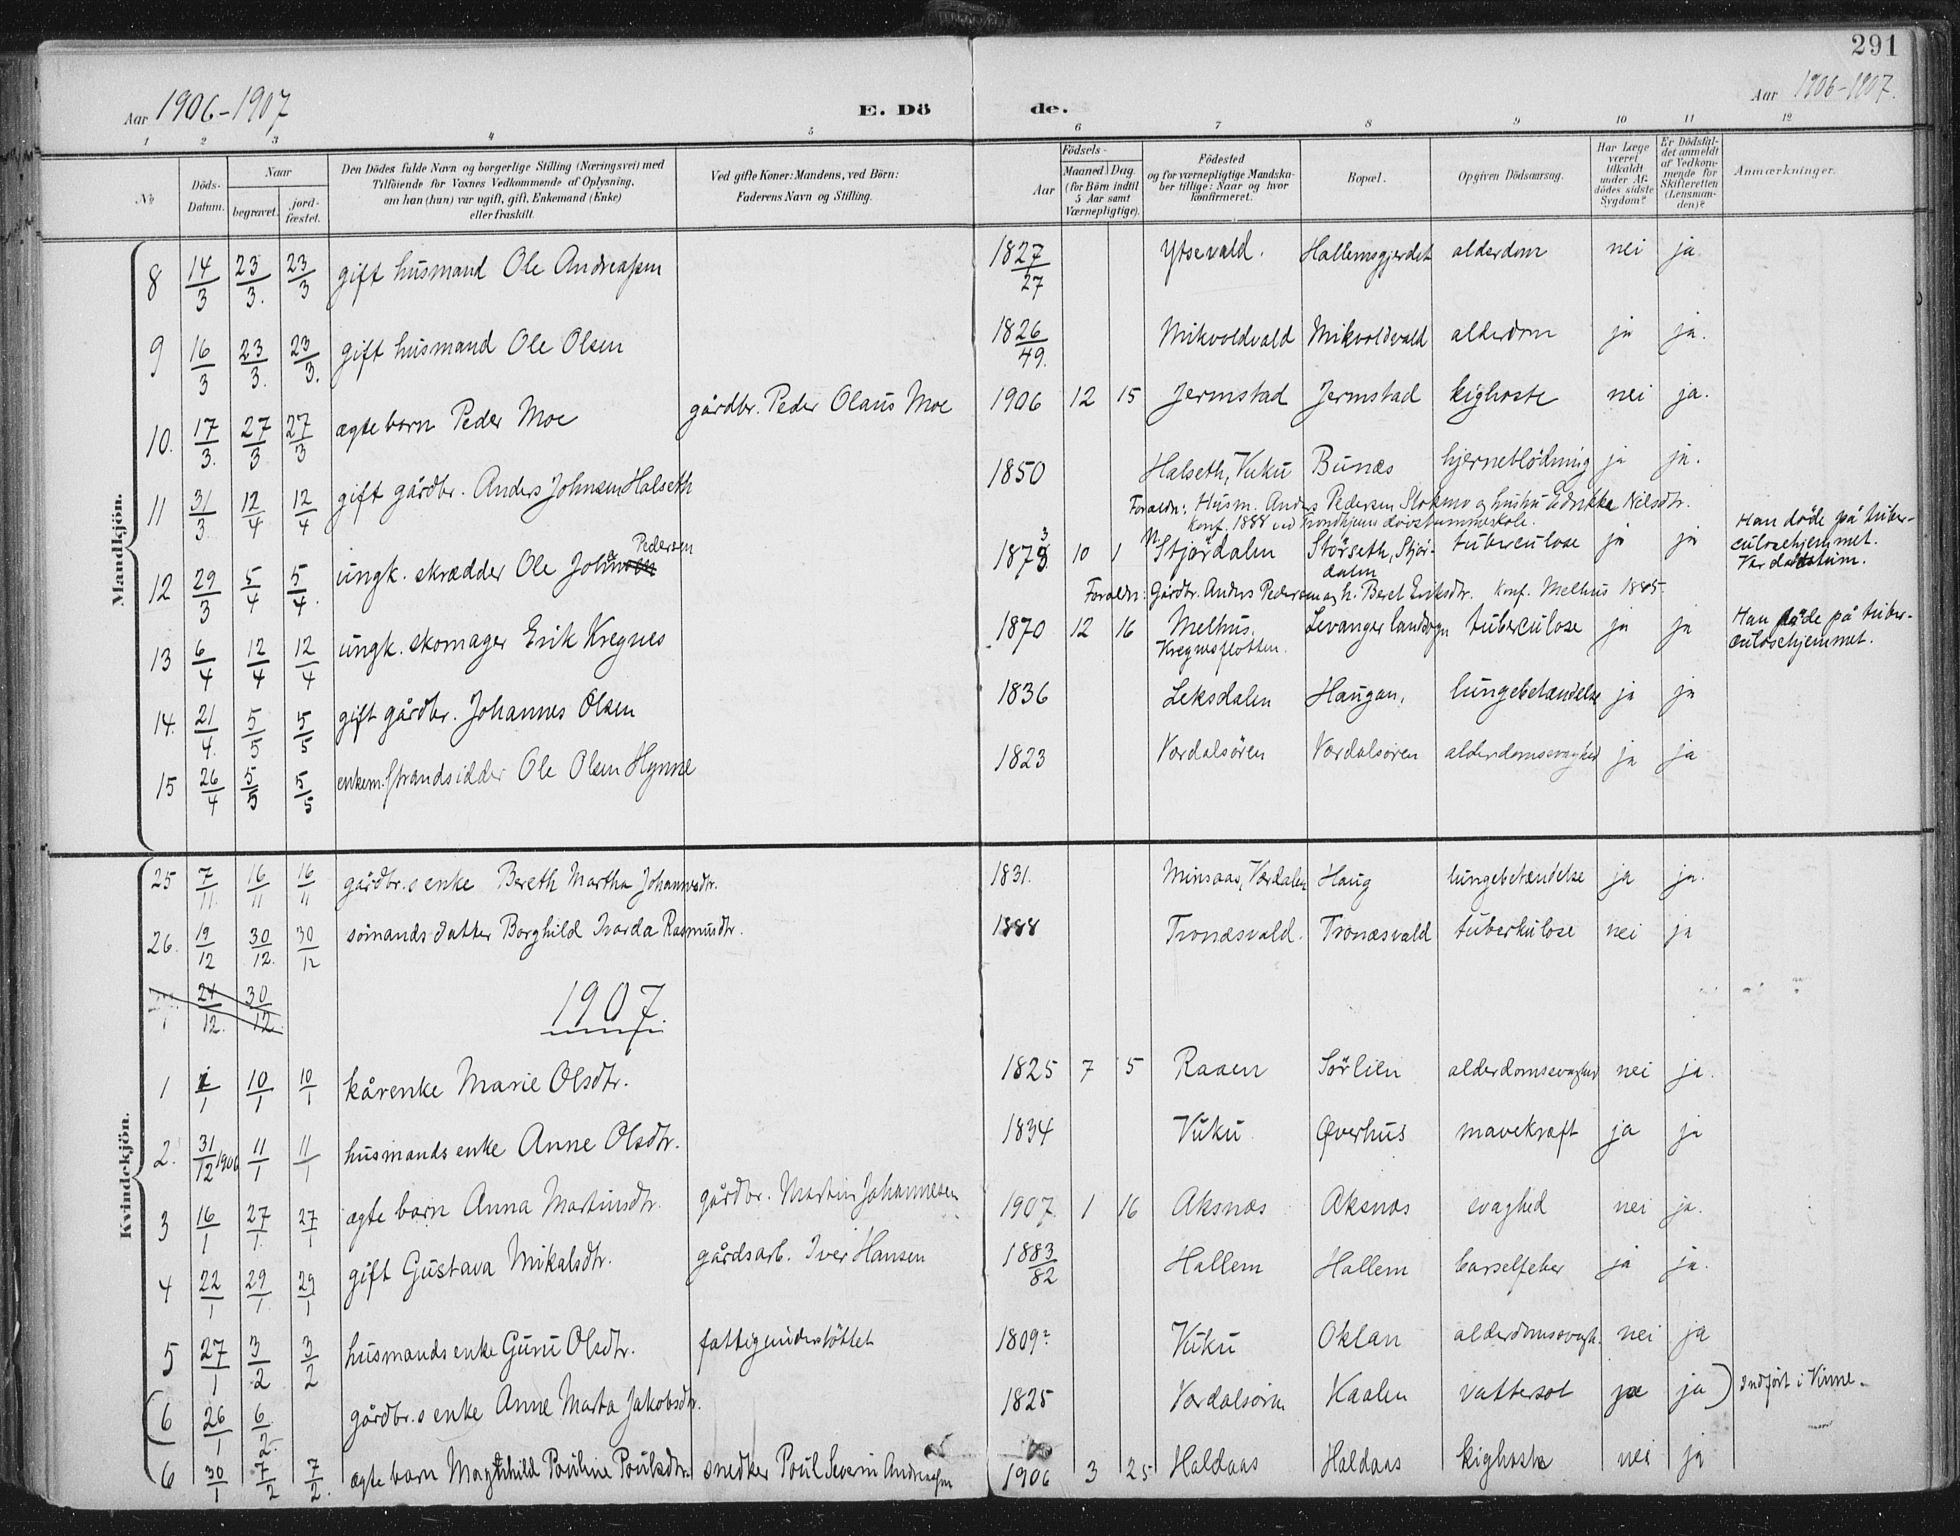 291
Aar 1906-1907 E. Dö de. Aar 1906-1907.
1 2 3 4 5 6 7 8 9 10 11 12
No. Döds-Datum. Naar begravet. jordfæstet. Den Dödes fulde Navn og borgerlige Stilling (Næringsvei) med Tilföiende for Voxnes Vedkommende af Oplysning, om han (hun) var ugift, gift, Enkemand (Enke) eller fraskilt. Ved gifte Koner: Mandens, ved Börn: Faderens Navn og Stilling. Födsels- Aar Maaned Dag. (for Börn indtil 5 Aar samt Værnepligtige). Födested og for værnepligtige Mandskaber tillige: Naar og hvor konfirmeret. Bopæl. Opgiven Dödsaarsag. Har Læge været tilkaldt under Afdödes sidste Sygdom? Er Dödsfaldet anmeldt af Vedkommende for Skifteretten (Lensmanden)? Anmærkninger.
Mandkjön.
8 14/3 23/3. 23/3 gift husmand Ole Andreassen 1827/27 Ytsevald. Hallemsgjerdet alderdom nei ja
9 16/3 23/3. 23/3. gift husmand Ole Olsen 1826/49. Mikvoldvald Mikvoldvald alderdom ja ja.
10. 17/3. 27/3 27/3 ægte barn Peder Moe gårdbr. Peder Olaus Moe 1906 12 15 Jermstad Jermstad kighoste nei ja.
11 31/3 12/4 12/4 gift gårdbr. Anders Johnsen Halseth 1850 Halseth, Vuku Bunæs hjerneblödning ja ja.
Foraldr: Husm. Anders Pedersen Stokmo og hustru Edrikke Nilsdtr.
konf. 1888 ved Trondhjems døvstummeskole.
12 29/3 5/4 5/4. ungk. skrædder Ole Johan Pedersen 1873 10 1 N Stjørdalen Störseth, Stjördalen tuberculose ja ja Han døde på tuberculosehjemmet. Værdalstuim.
Foraldr: Gårdbr. Anders Pedersen og h. Beret Eriksdtr. Konf. Melhus 1885.
13 6/4 12/4 12/4 ungk. skomager Erik Kregnes 1870 12 16 Melhus, Kregnesflotten. Levanger landsogn tuberculose ja ja Han døde på tuberculosehjemmet.
14. 21/4. 5/5 5/5 gift gårdbr. Johannes Olsen 1836 Leksdalen Haugan, lungebetændelse ja ja
15 26/4 5/5 5/5 enkem. Strandsidder Ole Olsen Hynne 1823 Værdalsören Værdalsøren alderdomssvaghed ja ja
Kvindekjön.
25 7/11. 16/11 16/11 gårdbr.s enke Bereth Martha Johannesdtr. 1831. Minsaas, Værdalen Haug lungebetændelse ja ja.
26. 19/12 30/12. 30/12 sömands datter Borghild Ivarda Rasmusdtr. 1888 Tronæsvald. Tronæsvald tuberkulose nei ja
24/12. 30/12
1907.
1 1/1 10/1 10/1 kårenke Marie Olsdtr. 1825 7 5 Raaen Sörlien alderdomssvaghed nei ja.
2. 31/12 1906 11/1 11/1 husmands enke Anne Olsdtr. 1834 Vuku Øverhus mavekræft ja ja
3 16/1 27/1. 27/1 ægte barn Anna Martinsdtr. gårdbr. Martin Johannesen 1907 1 16 Aksnæs Aksnæs svaghed nei ja.
4 22/1 29/1. 29/1 gift Gustava Mikalsdtr. gårdsarb. Iver Hansen 1883/82 Hallem Hallem barselfeber ja ja.
5 27/1 3/2 3/2 husmands enke Guru Olsdtr. fattigunderstöttet 1809? Vuku Oklan alderdomssvagh. nei ja
(6 26/1 6/2 gårdbr.s enke Anne Marta Jakobsdtr. 1825 Værdalsørn Kaalen vattersot ja ja) Indført i Vinne.
6 30/1 7/2 7/2. ægte barn Magnhild Pouline Poulsdtr. snedker Poul Severin Andreassen 1906 3 25 Haldaas Haldaas kighoste nei ja